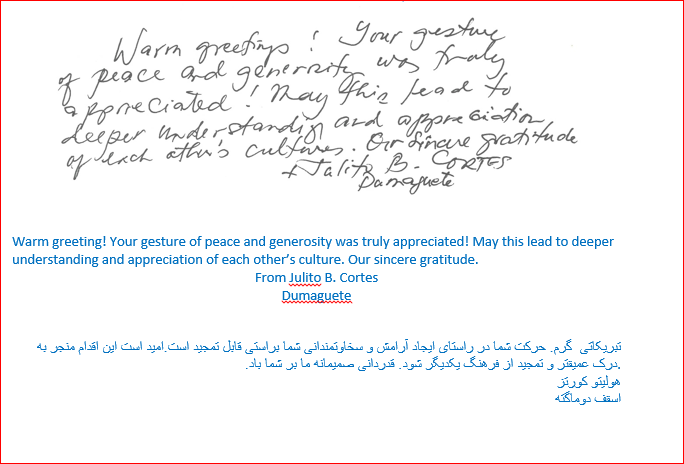 Warm greetings! Your gesture
of peace and generosity was truly
appreciated! May this lead to
deeper understanding and appreciation
of each other's cultures. Our sincere gratitude
+Julito B. CORTES
Dumaguete
Warm greeting! Your gesture of peace and generosity was truly appreciated! May this lead to deeper
understanding and appreciation of each other’s culture. Our sincere gratitude.
From Julito B. Cortes
Dumaguete
تبریکاتی گرم. حرکت شما در راستای ایجاد آرامش و سخاوتمندانی شما براستی قابل تمجید است.امید است این اقدام منجر به
.درک عمیقتر و تمجید از فرهنگ یکدیگر شود. قدردانی صمیمانه ما بر شما باد.
هولیتو کورتز
اسقف دوماگته